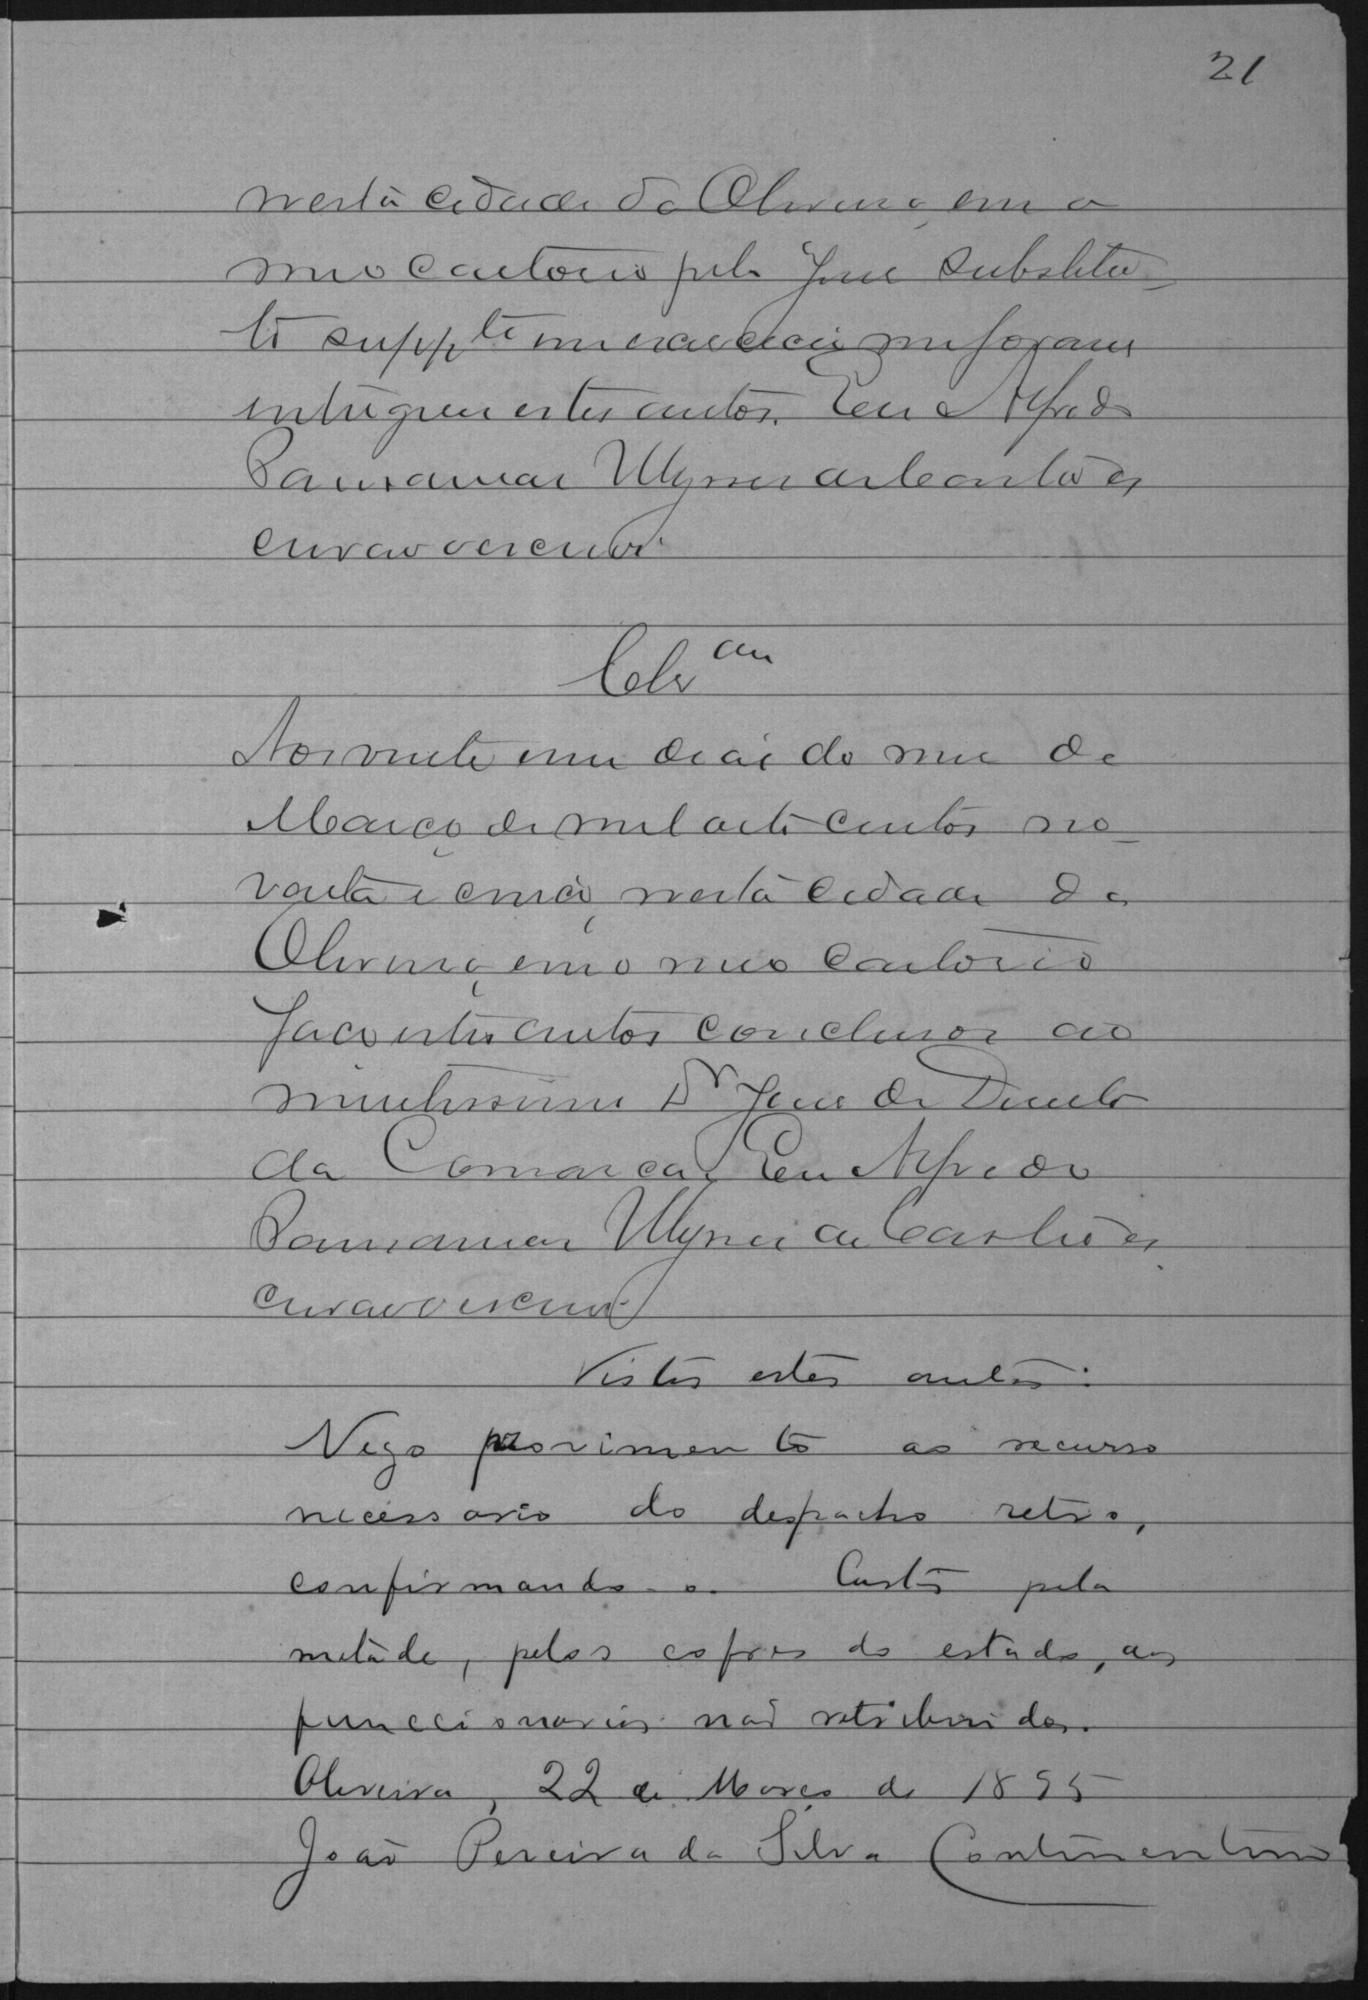 21
nesta cidade da Oliveira, em o
meo cartorio pelo Juiz substitu-
to suppte em exercicio me foram
entregues estes autos. Eu Alfredo
Ulysses de Castro es
crivão o escrevi.
Clsam
Aos vinte um dias do mez de
Março de mil oito centos no-
venta e cinco, nesta cidade da
Oliveira, em o meo cartorio
faço estes autos conclusos ao
Dr Juiz de Direito
da Comarca. Eu Alfredo
Ulysses de Castro es
crivão o escrevi.
Vistos estes autos:
Nego provimento ao recurso
necessario do despacho retro,
confirmando-o. Custas pela
metade, pelos cofres do estado, aos
funccionarios não retribuidos.
Oliveira, 22 de Março de 1895
João Pereira da Silva Continentino